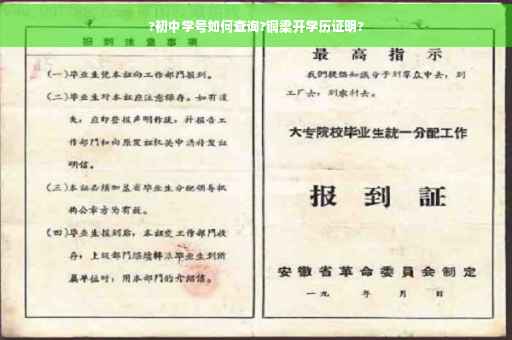 ?初中学号如何查询?铜梁开学历证明?
报到注意事项
(一)毕业生凭本证向工作部门报到。
(二)毕业生对本证应注意保存。如有遗
失,应即登报声明作废,并报告工
作部门和向原发证机关申请补发证
明信。
(三)本证必须加盖省毕业生分配领导机
构公章方为有效。
(四)毕业生报到后,本证交工作部门收
存;上级部门继续转派毕业生到所
属单位时,用本部门的介绍信。
最高指示
我们提倡知识分子到群众中去,到
工厂去,到农村去。
大专院校毕业生统一分配工作
报到证
安徽省革命委员会制定
一九 年 月 日